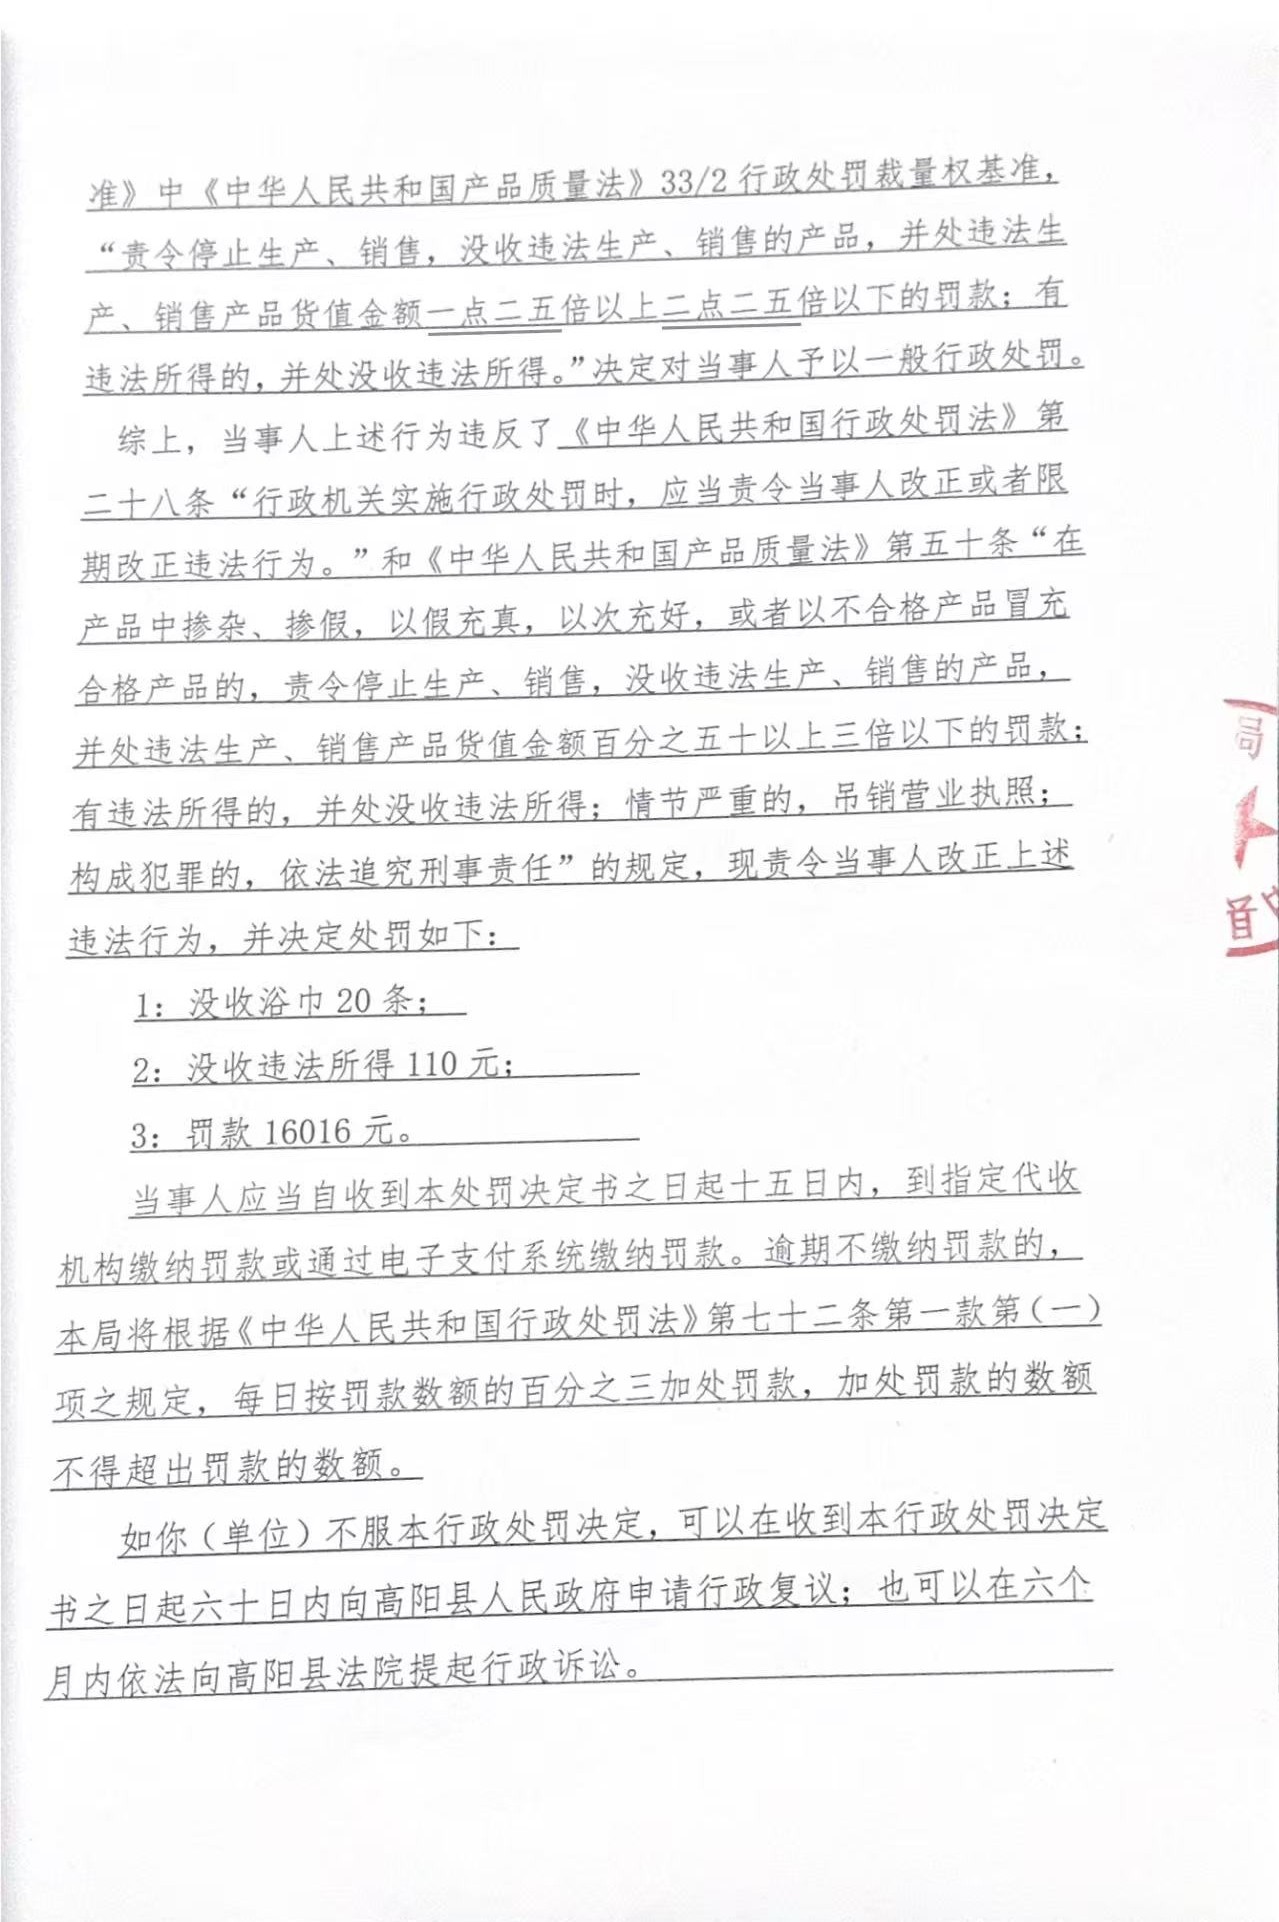 准》中《中华人民共和国产品质量法》33/2行政处罚裁量权基准，
“责令停止生产、销售，没收违法生产、销售的产品，并处违法生
产、销售产品货值金额一点二五倍以上二点二五倍以下的罚款；有
违法所得的，并处没收违法所得。”决定对当事人予以一般行政处罚。
综上，当事人上述行为违反了《中华人民共和国行政处罚法》第
二十八条“行政机关实施行政处罚时，应当责令当事人改正或者限
期改正违法行为。”和《中华人民共和国产品质量法》第五十条“在
产品中掺杂、掺假，以假充真，以次充好，或者以不合格产品冒充
合格产品的，责令停止生产、销售，没收违法生产、销售的产品，
并处违法生产、销售产品货值金额百分之五十以上三倍以下的罚款；
有违法所得的，并处没收违法所得；情节严重的，吊销营业执照；
构成犯罪的，依法追究刑事责任”的规定，现责令当事人改正上述
违法行为，并决定处罚如下：
1：没收浴巾20条；
2：没收违法所得110元；
3：罚款16016元。
当事人应当自收到本处罚决定书之日起十五日内，到指定代收
机构缴纳罚款或通过电子支付系统缴纳罚款。逾期不缴纳罚款的，
本局将根据《中华人民共和国行政处罚法》第七十二条第一款第(一)
项之规定，每日按罚款数额的百分之三加处罚款，加处罚款的数额
不得超出罚款的数额。
如你（单位）不服本行政处罚决定，可以在收到本行政处罚决定
书之日起六十日内向高阳县人民政府申请行政复议；也可以在六个
月内依法向高阳县法院提起行政诉讼。
局